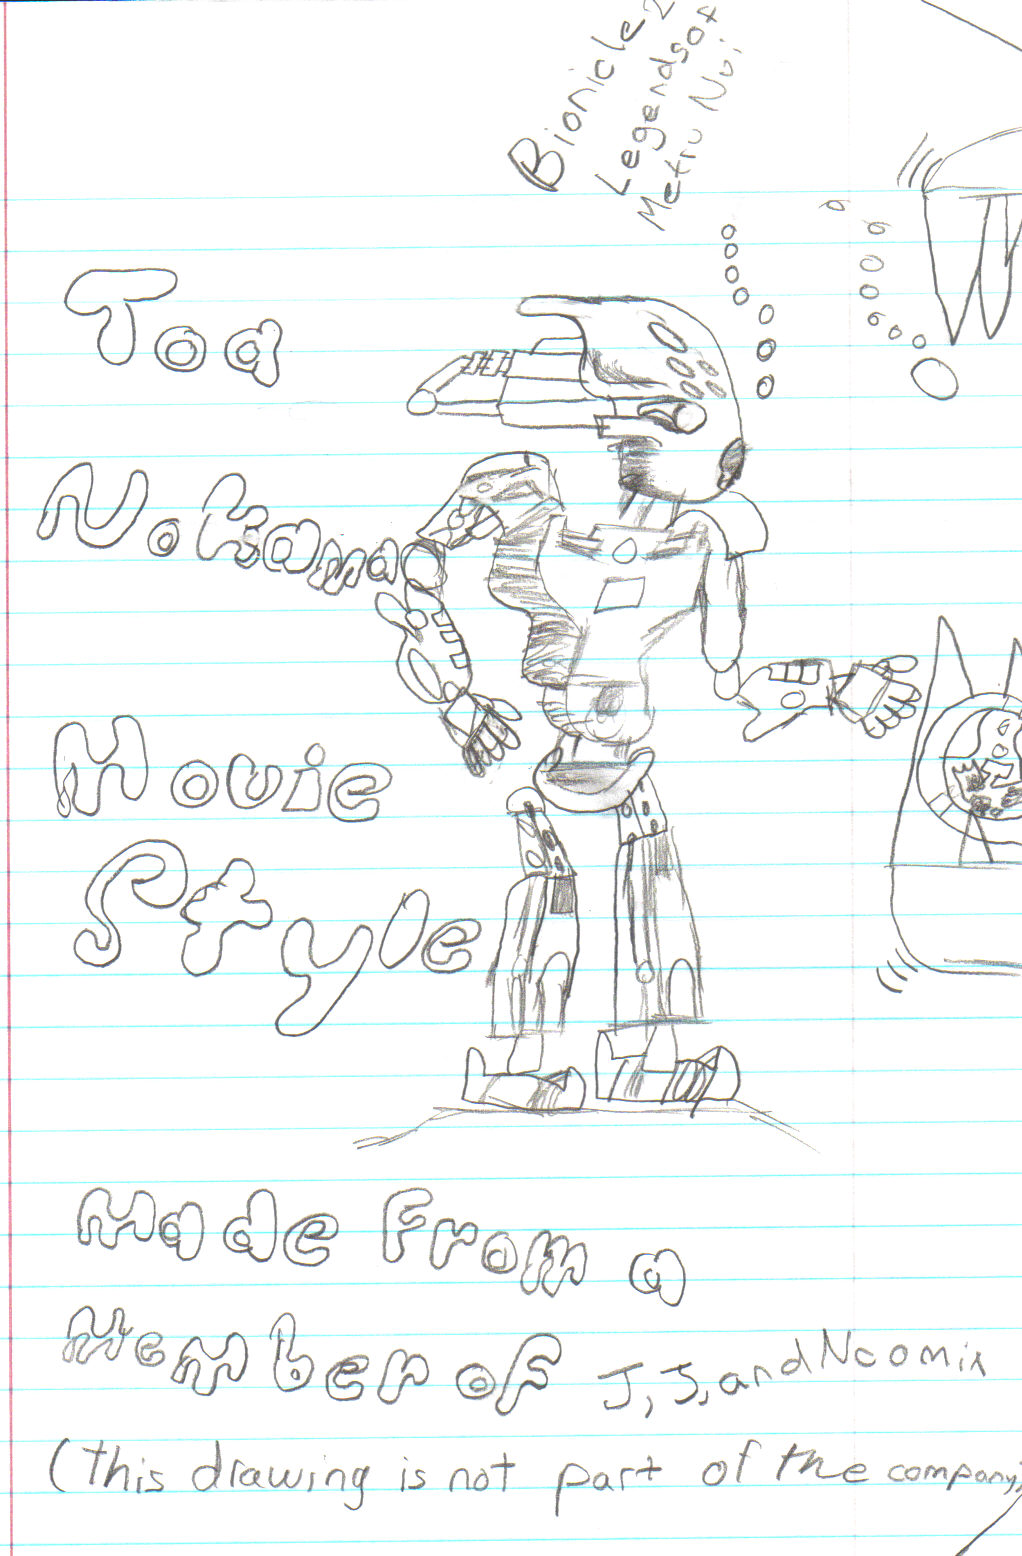 Bionicle 2
Legends of
Metru Nui
Toa
Nokama
Movie
Style
Made From a
Member of J, J, and Ncomix
(this drawing is not part of the company)